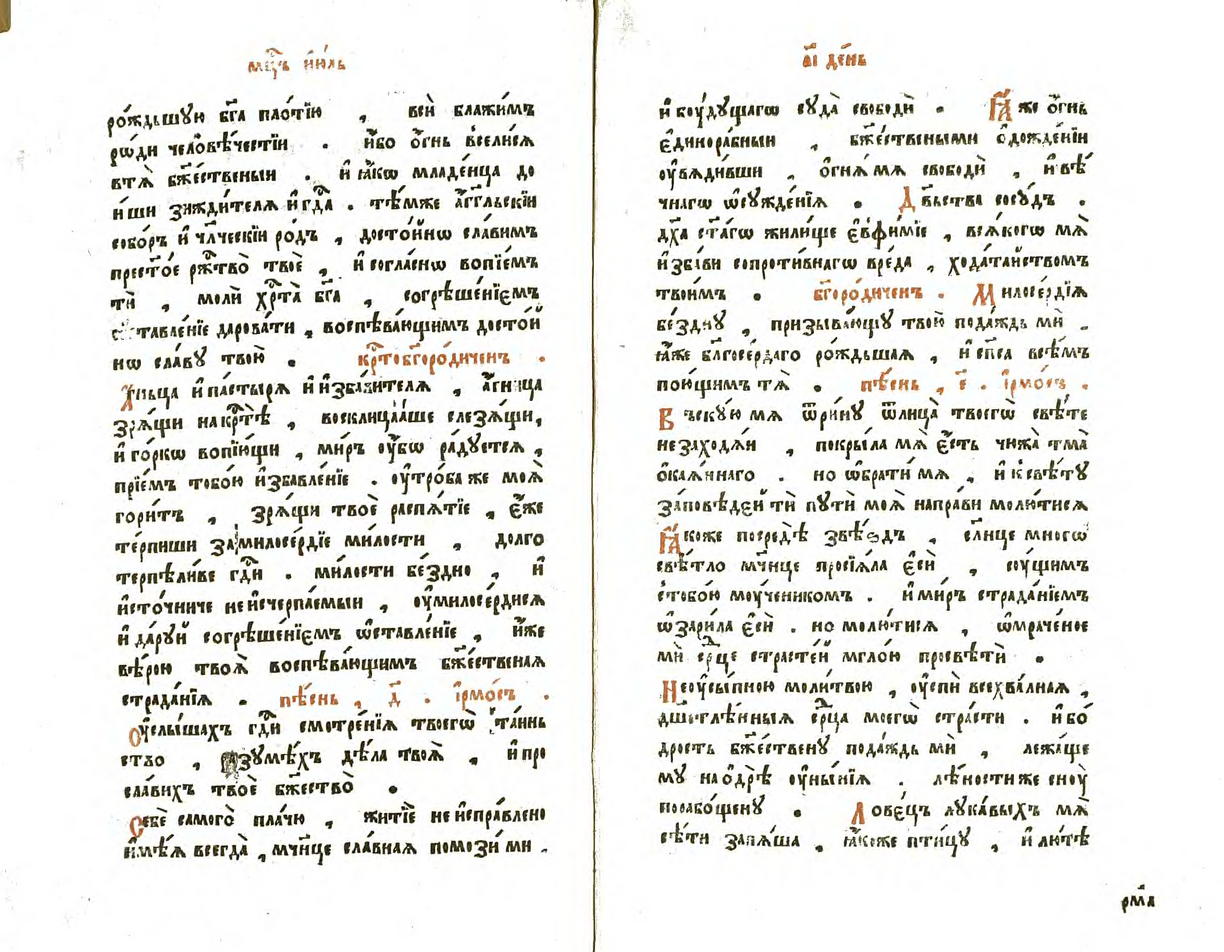 мⷭ҇цъ і҆ю́ль
ро́ждьшую бг҃а пло́тїю , вси̑ блажи́мъ
ро́ди человѣ́честїи . и҆́бо ѻ҆́гнь вселѝсѧ
втѧ̀ бж҃е́ственыи . и҆ ꙗ҆́кѡ младе́нца до
и҆́ши зижди́телѧ и҆ гдⷭ҇а . тѣ́мже а҆́гг҃льскїи
собо́ръ и҆ чл҃ческїи ро́дъ , досто́йнѡ сла́вимъ
прест҃о́е ржⷭ҇тво̀ твоѐ , и҆ согла́снѡ вопїе́мъ
тѝ , молѝ хрⷭ҇та̀ бг҃а , согрѣше́нїємъ
ѡ҆ставле́нїе дарова́ти , воспѣва́ющимъ досто́й
нѡ сла́вꙋ твою̀ . крⷭ҇тобг҃оро́диченъ .
А҆́гньца и҆ па́стырѧ и҆ и҆зба́вителѧ , а҆́гница
зрѧ́щи на крⷭ҇тѣ̀ , восклица́ше слезѧ́щи,
и҆ го́ркѡ вопїю́щи , ми́ръ ᲂу҆́бѡ ра́дꙋетсѧ ,
прїе́мъ тобо́ю и҆збавле́нїе . ᲂу҆тро́ба же моѧ̀
гори́тъ , зрѧ́щи твоѐ распѧ́тїе , є҆́же
терпи́ши за милосе́рдїе ми́лости , долго
терпѣли́ве гдⷭ҇и . ми́лости бе́здно , и҆
и҆сто́чниче неисчерпа́емыи , ᲂу҆милосе́рдисѧ
и҆ да́рꙋй согрѣше́нїємъ ѡ҆ставле́нїе , и҆́же
вѣ́рою твоѧ̀ воспѣва́ющимъ бж҃е́ственаѧ
страда́нїѧ . пѣ́снь , д҃ . і҆рмо́съ .
Оу҆слы́шахъ гдⷭ҇и смотре́нїѧ твоегѡ̀ та́инь
ство , разꙋмѣ́хъ дѣла̀ твоѧ̀ , и҆ про
сла́вихъ твоѐ бж҃ество̀ .
Себѐ самого̀ пла́чю , житїѐ неиспра́влено
и҆мѣ́ѧ всегда̀ , мч҃нице сла́внаѧ помозѝ ми .
а҃і де́нь
и҆ бꙋ́дꙋщагѡ сꙋда̀ свободѝ . Ꙗ҆́же ѻ҆́гнь
є҆динора́вныи , бж҃е́ствеными ѻ҆дожде́нїи
ᲂу҆вѧди́вши , ѻ҆гнѧ́ мѧ свободѝ , и҆ вѣ́
чнагѡ ѡ҆сꙋжде́нїѧ . Дв҃ьства сосꙋ́дъ .
дх҃а ст҃а́гѡ жили́ще є҆ѵфи́мїе , всѧ́когѡ мѧ̀
и҆зба́ви сопроти́внагѡ вре́да , хода́тайствомъ
твои́мъ . бг҃оро́диченъ . Милосе́рдїѧ
бе́зднꙋ , призыва́ющꙋ твою̀ пода́ждь мѝ .
ꙗ҆́же бл҃госе́рдаго ро́ждьшаѧ , и҆ сп҃са всѣ́мъ
пою́щимъ тѧ̀ . пѣ́снь , є҃ . і҆рмо́съ .
Въскꙋ́ю мѧ ѿри́нꙋ ѿлица̀ твоегѡ̀ свѣ́те
незаходѧ́и , покры́ла мѧ̀ є҆́сть чюжа̀ тма̀
ѻ҆каѧ́ннаго . но ѡ҆брати́ мѧ , и҆ к свѣ́тꙋ
за́повѣдєй тѝ пꙋтѝ моѧ̀ напра́ви молю́тисѧ
Ꙗ҆́коже посредѣ̀ звѣ́здъ , сл҃нце многѡ̀
свѣ́тло мч҃нице просїѧ́ла є҆сѝ , сꙋ́щимъ
с тобо́ю мꙋ́чеником . и҆ ми́ръ страда́нїємъ
ѡ҆зари́ла є҆сѝ . но молю́тисѧ , ѡ҆мраче́ное
мѝ срⷣце страсте́й мгло́ю просвѣтѝ .
Неᲂу҆сы́пною моли́твою , ᲂу҆спѝ всехва́лнаѧ ,
дш҃етлѣ́нныѧ срⷣца моегѡ̀ стра́сти . и҆ бо́
дрость бж҃е́ственꙋ пода́ждь мѝ , лежа́ще
мꙋ на ѻ҆дрѣ̀ ᲂу҆ны́нїѧ . лѣ́ности же сно́ꙋ
порабо́щенꙋ . Лове́цъ лꙋка́выхъ мѧ̀
сѣ́ти запѧ́ша , ꙗ҆́коже пти́цꙋ , и҆ лю́тѣ
рм҃а